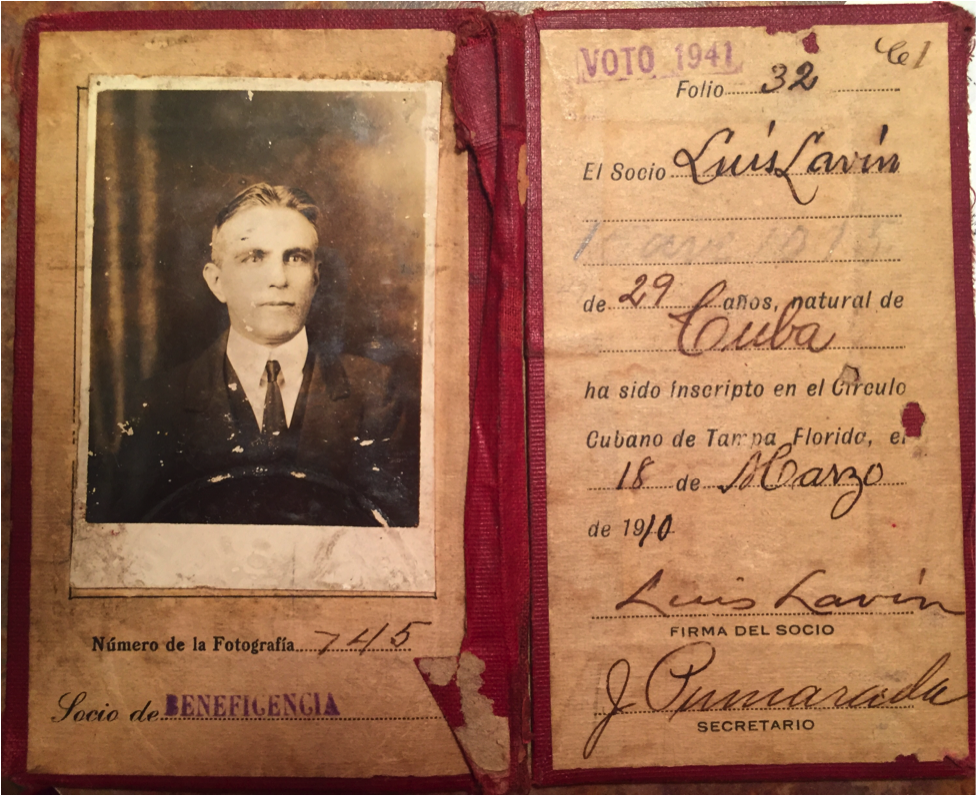 Número de la Fotografía 745
Socio de BENEFICENCIA
VOTO 1941
Folio 32
El Socio Luis Lavín
de 29 años, natural de
Cuba
ha sido inscripto en el Círculo
Cubano de Tampa Florida, el
18 de Marzo
de 1910
Luis Lavín
FIRMA DEL SOCIO
J Pumarada
SECRETARIO